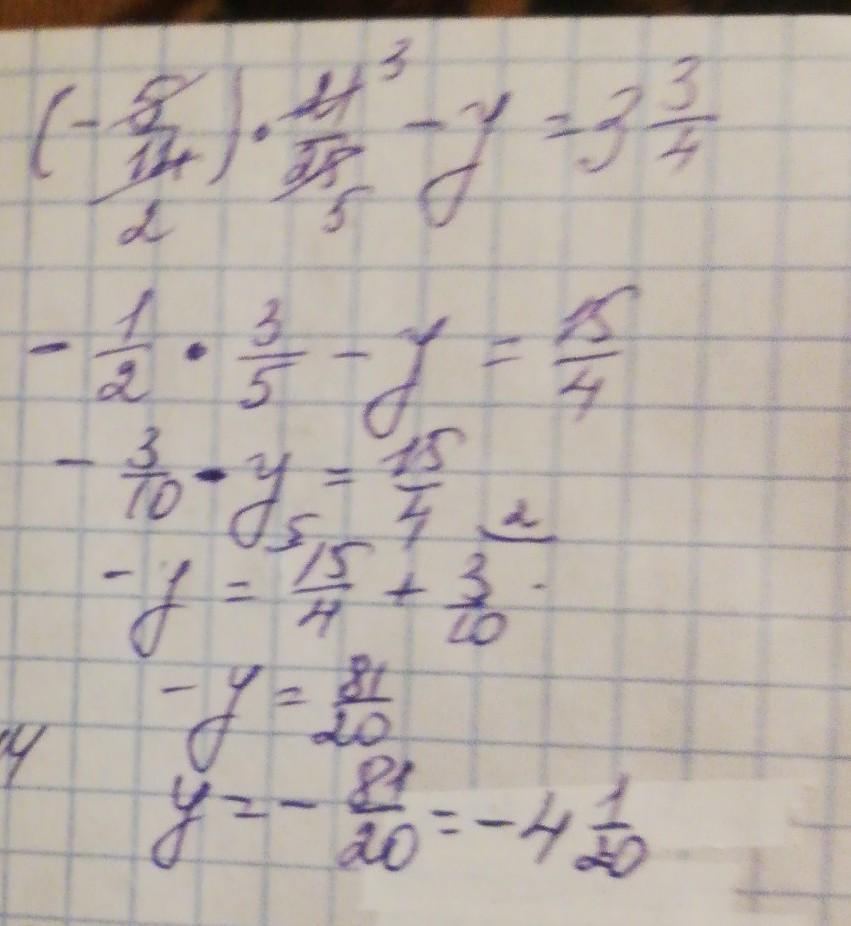 (-5/14) · 21/25 - y = 3 3/4
2 3 5
- 1/2 · 3/5 - y = 15/4
- 3/10 - y = 15/4
- y = 15/4 + 3/10
5 2
- y = 81/20
y = - 81/20 = -4 1/20